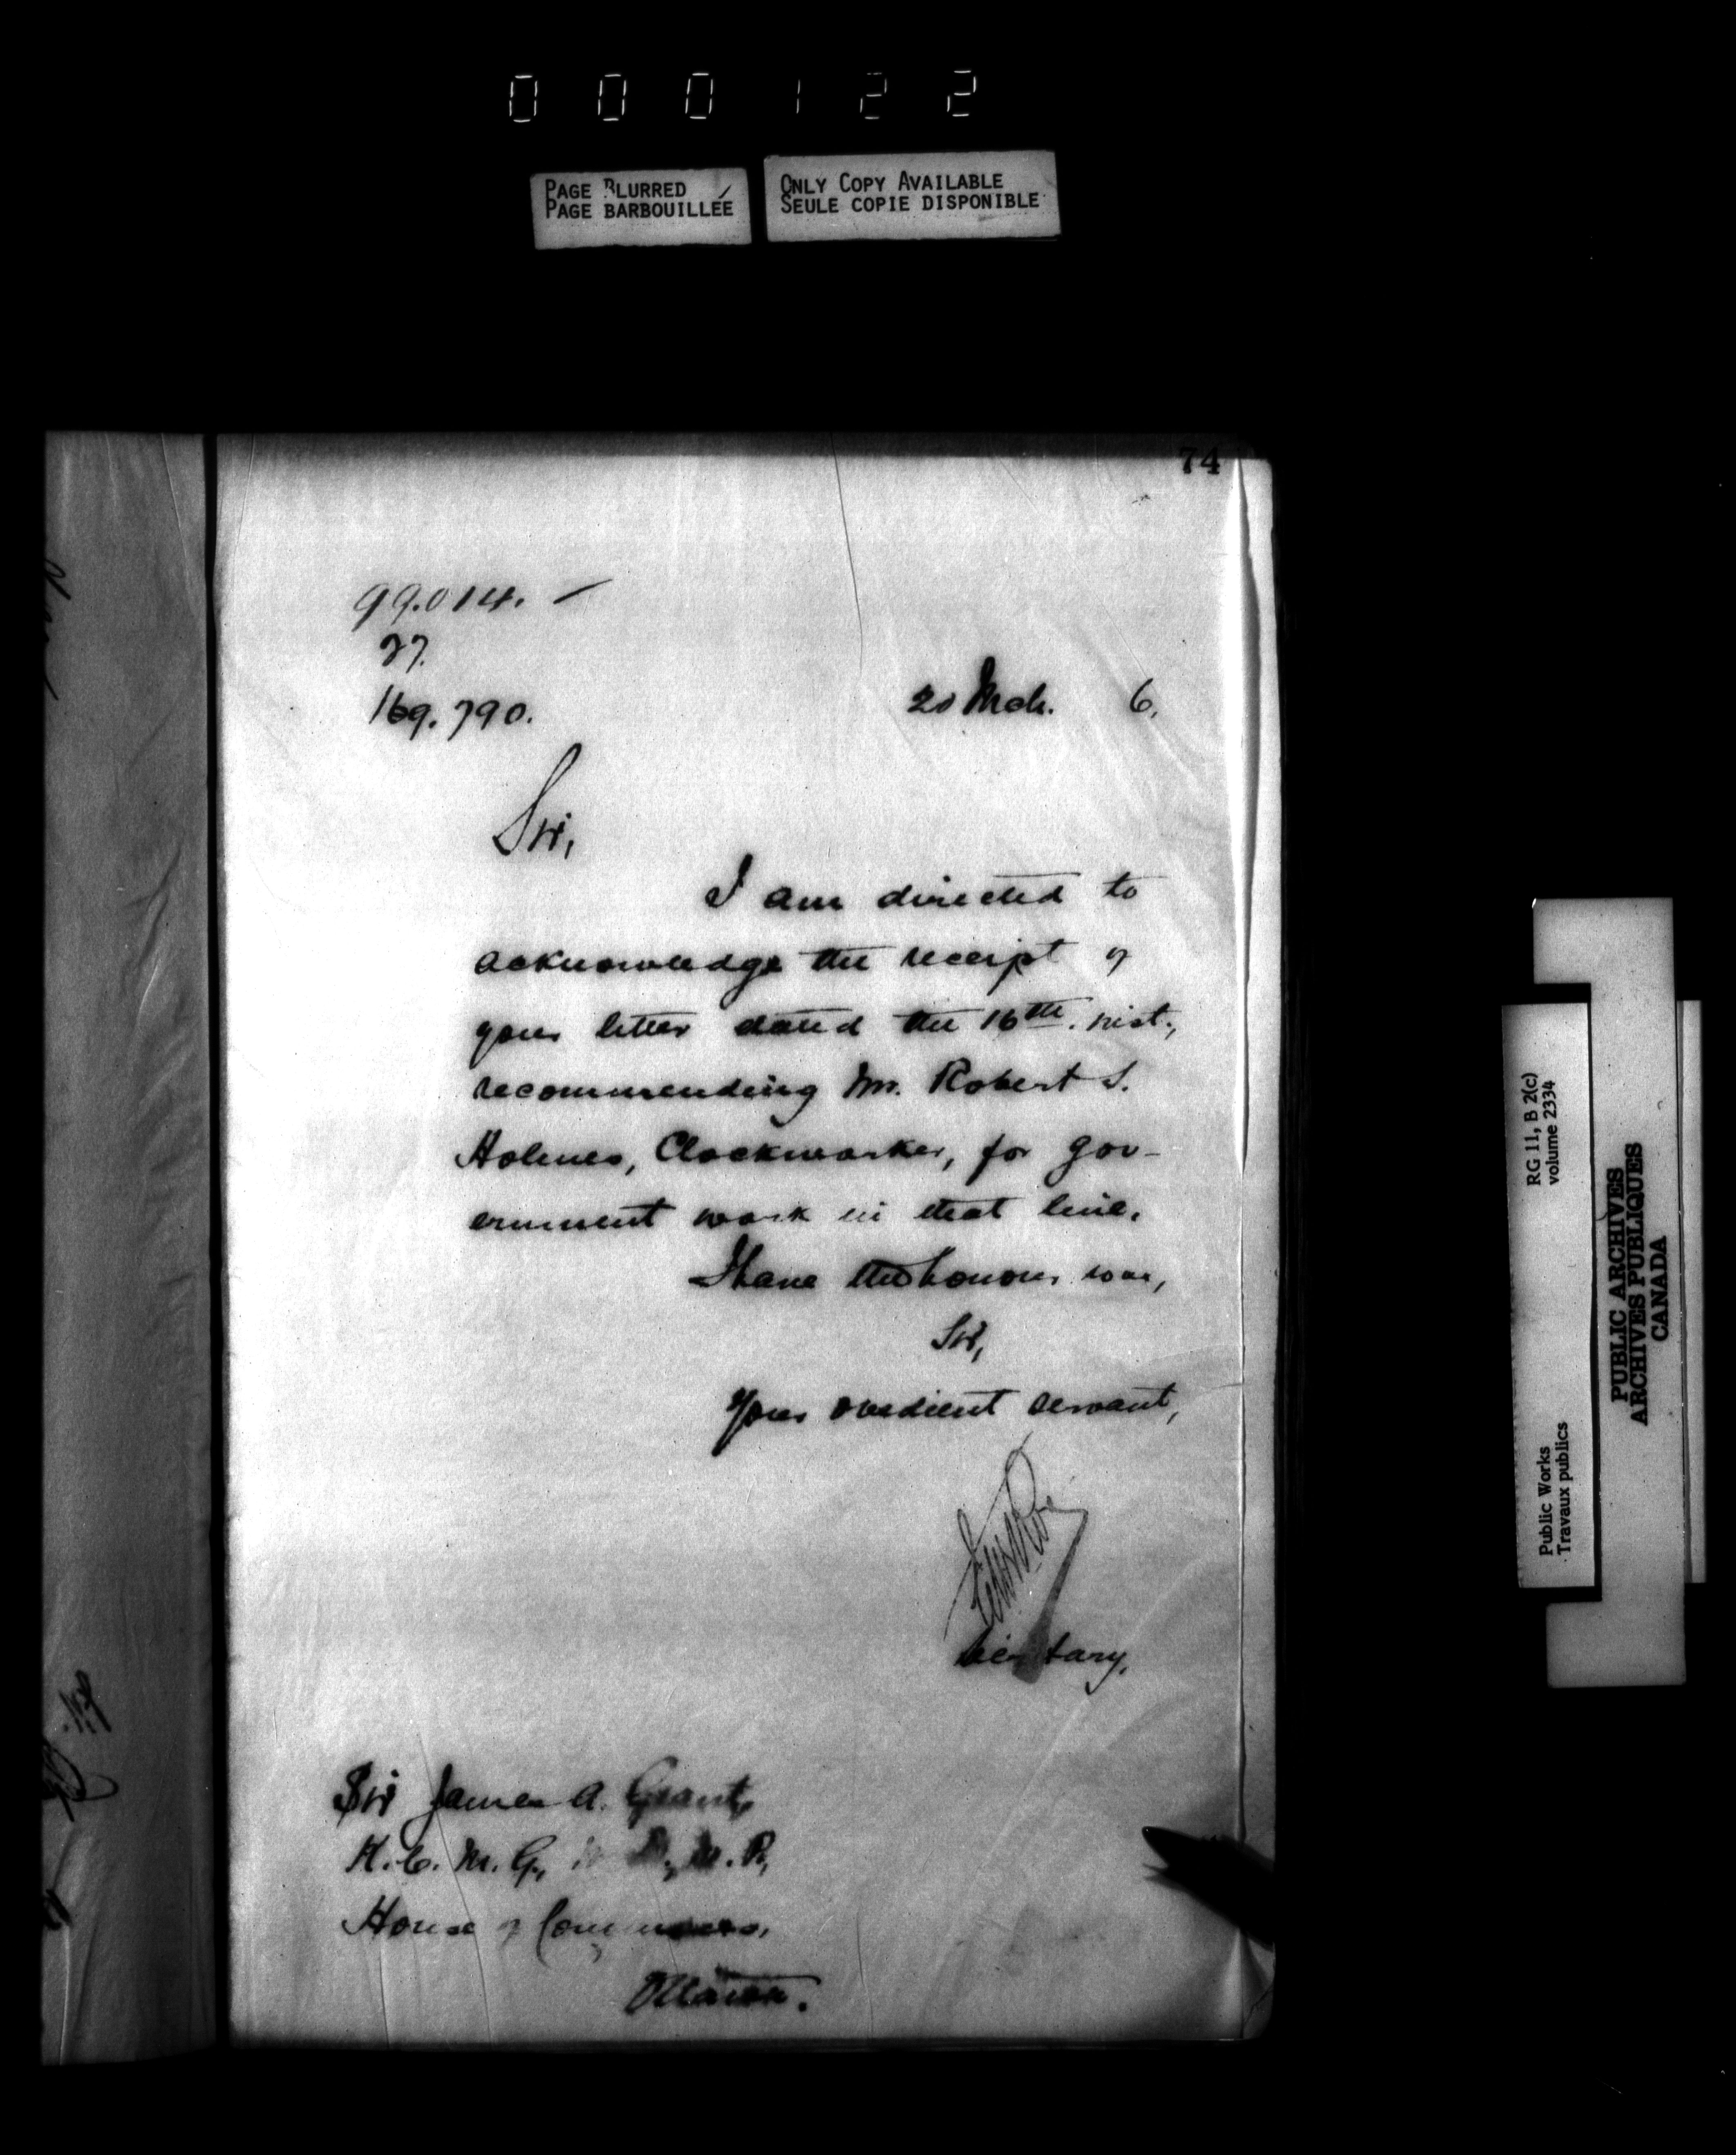 000122
PAGE BLURRED
PAGE BARBOUILLÉE
ONLY COPY AVAILABLE
SEULE COPIE DISPONIBLE
74
99.014. –
27.
169.790.
20 Mch. 6.
Sir,
I am directed to
acknowledge the receipt of
your letter dated the 16th. inst.,
recommending Mr. Robert S.
Holmes, Clockworker, for gov-
ernment work in that line.
I have the honour to be,
Sir,
Your obedient servant,
Secretary.
Sir James A. Grant,
K.C.M.G., M.P.,
House of Commons,
Ottawa.
Public Works
Travaux publics
RG 11, B 2(c)
volume 2334
PUBLIC ARCHIVES
ARCHIVES PUBLIQUES
CANADA